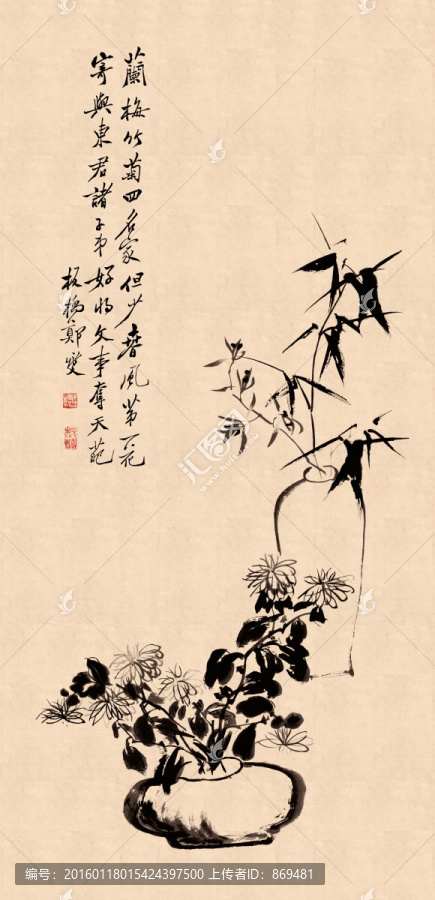 蘭梅竹菊四名家但少春風第一花
寄與東君諸子弟好將文事奪天葩
板橋鄭燮
汇图网
编号:20160118015424397500 上传者ID:869481